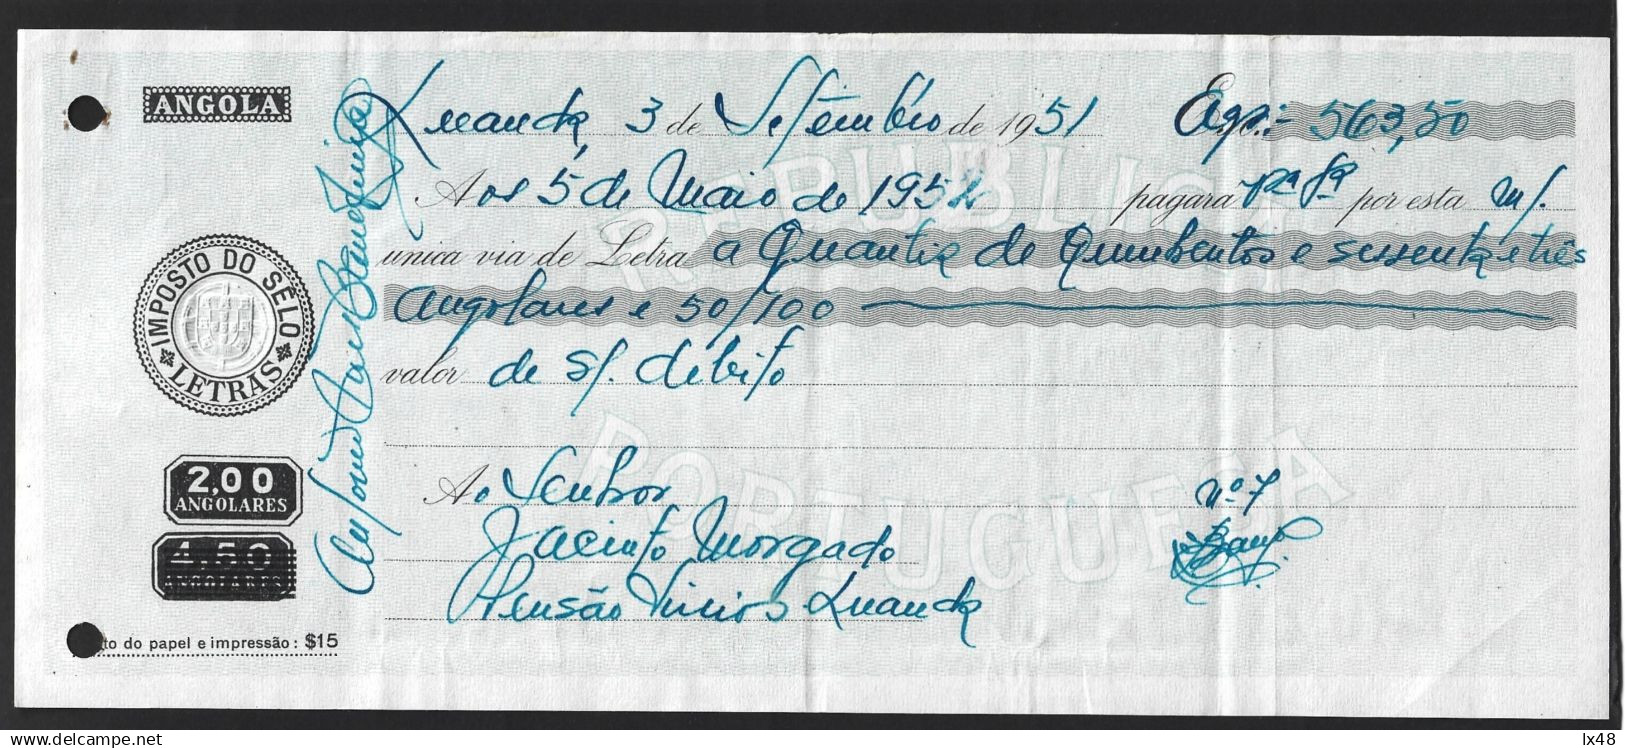 ANGOLA
Luanda, 3 de Setembro de 1951 Ags.:- 563,50
Aos 5 de Maio de 1952 pagará por esta m/.
única via de Letra a quantia de Quinhentos e sessenta e três
angolares e 50/100
valor de s/. débito
IMPOSTO DO SÊLO
LETRAS
2,00
ANGOLARES
4,50
ANGOLARES
Ao Senhor
Jacinto Morgado
Pensão Luanda
Nº 7
to do papel e impressão: $15
REPUBLICA
PORTUGUESA
www.delcampe.net
lx48